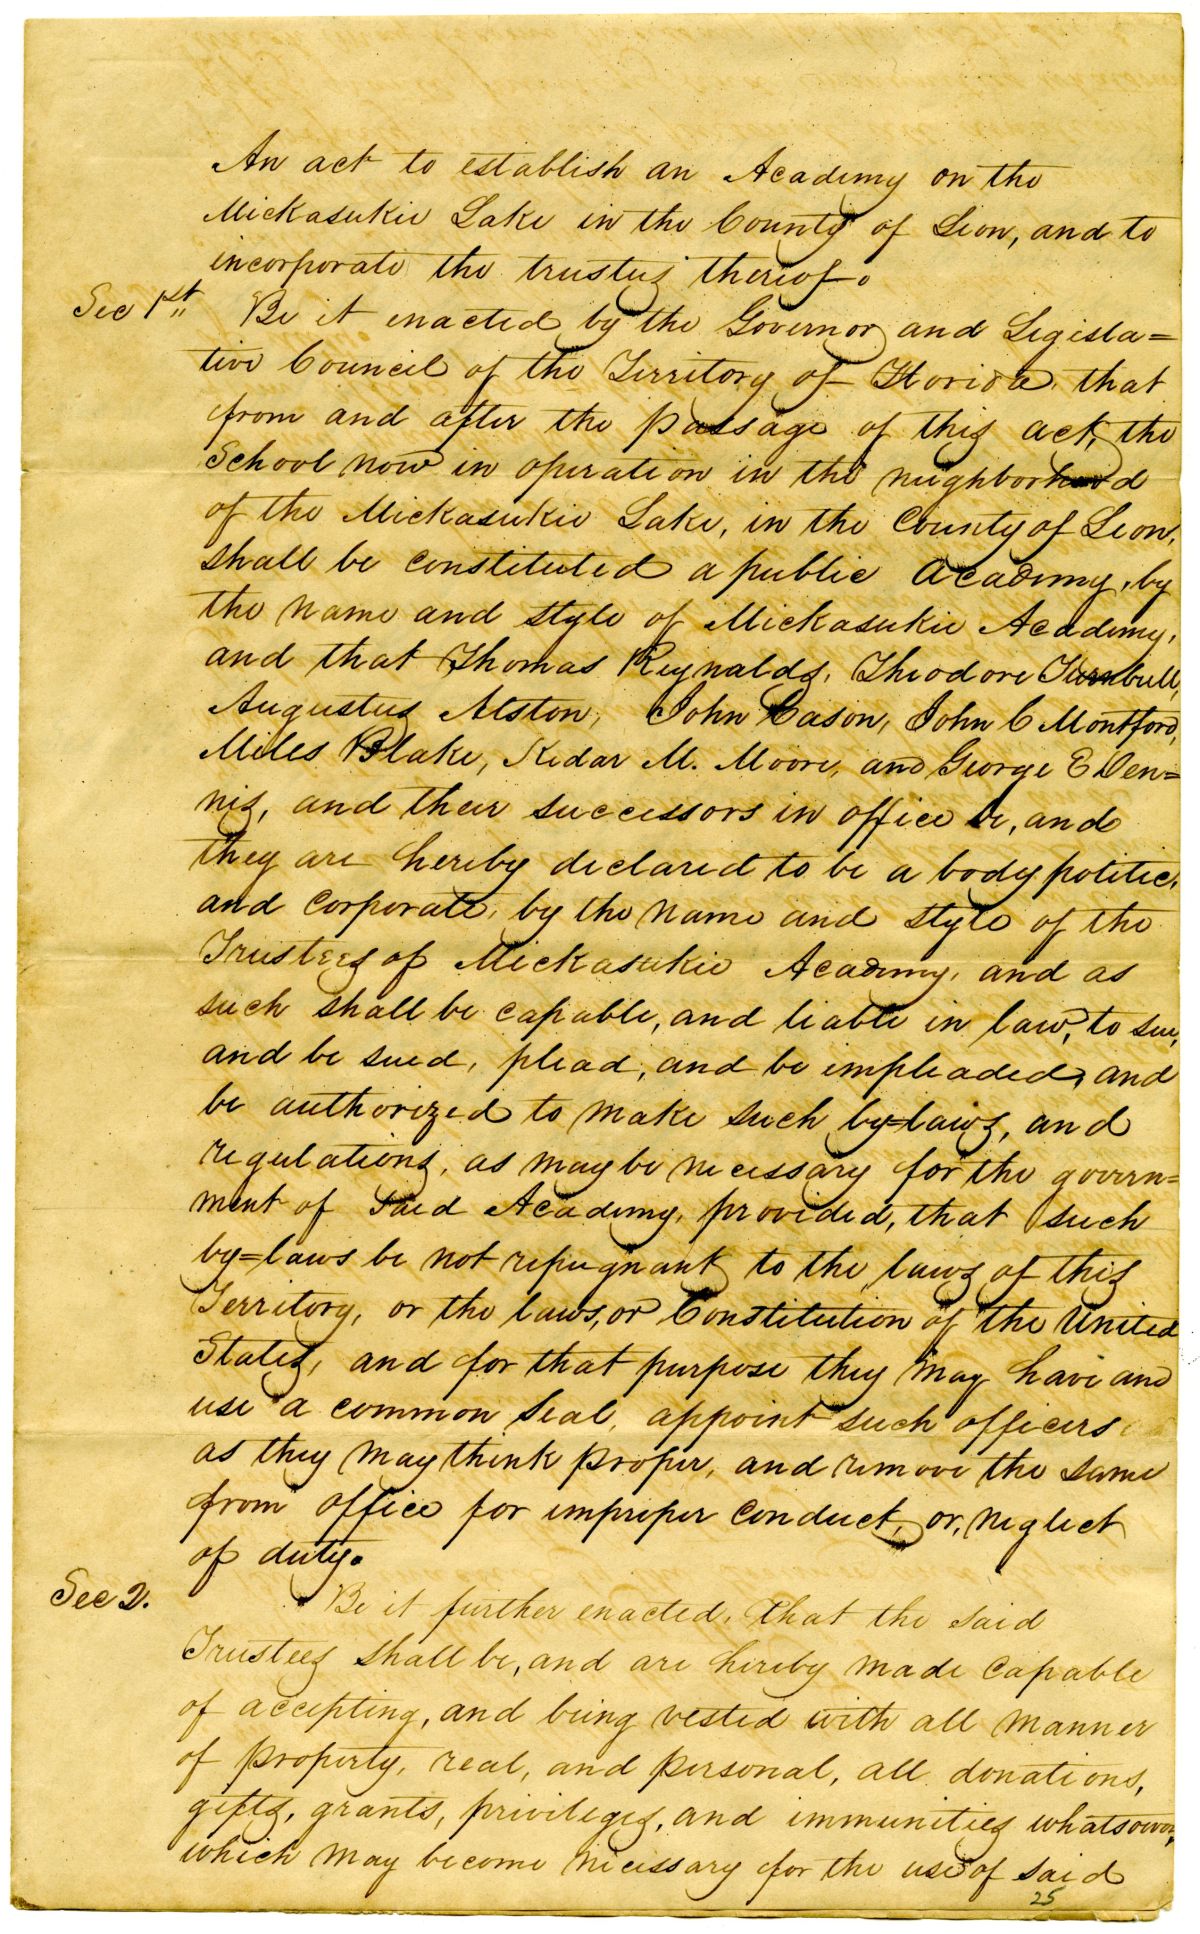 An act to establish an Academy on the
Mickasukie Lake in the County of Leon, and to
incorporate the trustees thereof.
Sec 1st. Be it enacted by the Governor and Legisla=
tive Council of the Territory of Florida, that
from and after the passage of this act, the
School now in operation in the neighborhood
of the Mickasukie Lake, in the County of Leon,
shall be constituted a public academy, by
the name and style of Mickasukie Academy,
and that Thomas Reynalds, Theodore Turnbull,
Augustus Alston, John Cason, John C Montford,
Miles Blake, Kedar M. Moore, and George E Den=
nis, and their successors in office be, and
they are hereby declared to be a body politic,
and corporate, by the name and style of the
Trustees of Mickasukie Academy, and as
such shall be capable, and liable in law, to sue,
and be sued, plead, and be impleaded, and
be authorized to make such by=laws, and
regulations, as may be necessary for the govern=
ment of said Academy, provided, that such
by=laws be not repugnant to the laws of this
Territory, or the laws, or Constitution of the United
States, and for that purpose they may have and
use a common seal, appoint such officers
as they may think proper, and remove the same
from office for improper conduct, or, neglect
of duty.
Sec 2. Be it further enacted, that the said
Trustees shall be, and are hereby made capable
of accepting, and being vested with all manner
of property, real, and personal, all donations,
gifts, grants, privileges, and immunities whatsoever,
which may become necessary for the use of said
25